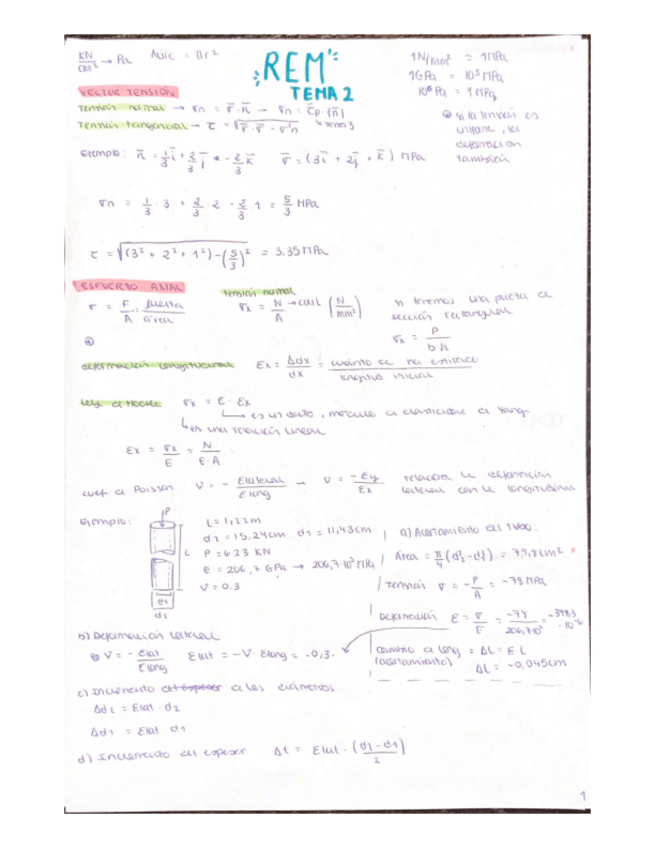 KN/cm² → Pa   Acirc = πr²
REM
TEMA 2
1N/mm² = 1MPa
1GPa = 10³ MPa
10⁶ Pa = 1 MPa
VECTOR TENSIÓN
Tensión normal → σn = σ̄ · n̄ →
Tensión tangencial → τ = √(σ̄ · σ̄ - σ²n)   ↳ tema 3
⊛ si la tensión es
uniforme, la
deformación
también
Ejemplo: n̄ = 1/3 i̅ + 2/3 j̅ - 2/3 k̅   σ̄ = (3i̅ + 2j̅ + k̅) MPa
σn = 1/3 · 3 + 2/3 · 2 - 2/3 · 1 = 5/3 MPa
τ = √((3² + 2² + 1²) - (5/3)²) = 3.35 MPa
ESFUERZO AXIAL
σ = F/A = fuerza/área
tensión normal
σx = N/A → axil (N/mm²)
si tenemos una pieza de
sección rectangular
σx = P/b·h
deformación longitudinal   Ex = Δdx/dx = cuánto se ha estirado/longitud inicial
Ley de Hooke   σx = E · Ex
↳ es un dato, módulo de elasticidad de Yang
↳ es una relación lineal
Ex = σx/E = N/E·A
coef de Poisson   V = - Elateral/Elong → V = -Ey/Ex   relaciona la deformación
lateral con la longitudinal
Ejemplo:
P
L
d1
d2
L = 1,22m
d2 = 15,24cm   d1 = 11,43cm
P = 623 KN
E = 206,7 GPa → 206,7·10³ MPa
V = 0.3
a) Acortamiento del tubo.
Área = π/4 (d2² - d1²) = 79,8cm²
Tensión σ = -P/A = -78 MPa
Deformación E = σ/E = -78/206,7·10³ = · 10⁻⁶
cambio de long = ΔL = E L
(acortamiento)   ΔL = -0,045cm
b) Deformación lateral
V = - Elat/Elong   Elat = -V · Elong = -0,3 ·
c) Incremento del espesor de los diámetros
Δd2 = Elat · d2
Δd1 = Elat d1
d) Incremento del espesor   Δt = Elat · (d2 - d1/2)
1